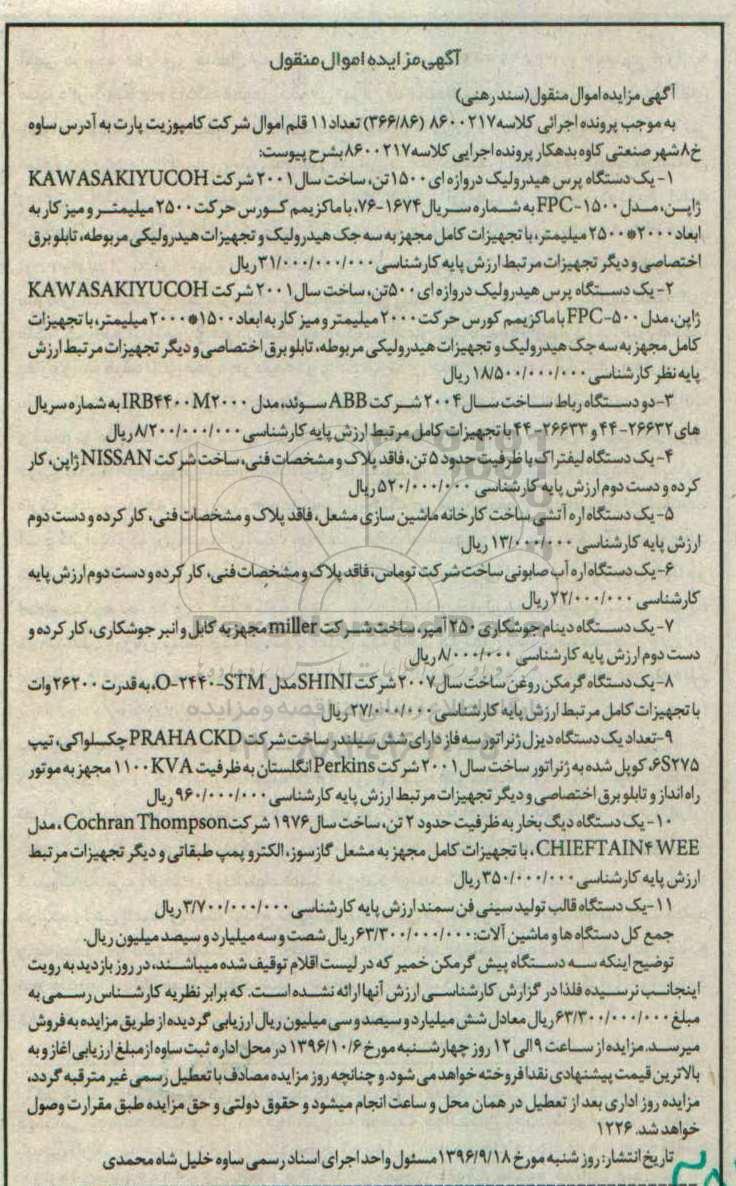 آگهی مزایده اموال منقول
آگهی مزایده اموال منقول(سند رهنی)
به موجب پرونده اجرائی کلاسه ۸۶۰۰۲۱۷ (۳۶۶/۸۶) تعداد ۱۱ قلم اموال شرکت کامپوزیت پارت به آدرس ساوه
خ۸ شهر صنعتی کاوه بدهکار پرونده اجرایی کلاسه ۸۶۰۰۲۱۷ بشرح پیوست:
۱- یک دستگاه پرس هیدرولیک دروازه ای ۱۵۰۰ تن، ساخت سال ۲۰۰۱ شرکت KAWASAKIYUCOH
ژاپن، مدل FPC-۱۵۰۰ به شماره سریال ۱۶۷۴-۷۶، با ماکزیمم کورس حرکت ۲۵۰۰ میلیمتر و میز کار به
ابعاد ۲۰۰۰*۲۵۰۰ میلیمتر، با تجهیزات کامل مجهز به سه جک هیدرولیک و تجهیزات هیدرولیکی مربوطه، تابلو برق
اختصاصی و دیگر تجهیزات مرتبط ارزش پایه کارشناسی ۳۱/۰۰۰/۰۰۰/۰۰۰ ریال
۲- یک دستگاه پرس هیدرولیک دروازه ای ۵۰۰ تن، ساخت سال ۲۰۰۱ شرکت KAWASAKIYUCOH
ژاپن، مدل FPC-۵۰۰ با ماکزیمم کورس حرکت ۲۰۰۰ میلیمتر و میز کار به ابعاد ۱۵۰۰*۲۰۰۰ میلیمتر، با تجهیزات
کامل مجهز به سه جک هیدرولیک و تجهیزات هیدرولیکی مربوطه، تابلو برق اختصاصی و دیگر تجهیزات مرتبط ارزش
پایه نظر کارشناسی ۱۸/۵۰۰/۰۰۰/۰۰۰ ریال
۳- دو دستگاه رباط ساخت سال ۲۰۰۴ شرکت ABB سوئد، مدل IRB۴۴۰۰M۲۰۰۰ به شماره سریال
های ۲۶۶۳۲-۴۴ و ۲۶۶۳۳-۴۴ با تجهیزات کامل مرتبط ارزش پایه کارشناسی ۸/۲۰۰/۰۰۰/۰۰۰ ریال
۴- یک دستگاه لیفتراک با ظرفیت حدود ۵ تن، فاقد پلاک و مشخصات فنی، ساخت شرکت NISSAN ژاپن، کار
کرده و دست دوم ارزش پایه کارشناسی ۵۲۰/۰۰۰/۰۰۰ ریال
۵- یک دستگاه اره آتشی ساخت کارخانه ماشین سازی مشعل، فاقد پلاک و مشخصات فنی، کار کرده و دست دوم
ارزش پایه کارشناسی ۱۳/۰۰۰/۰۰۰ ریال
۶- یک دستگاه اره آب صابونی ساخت شرکت توماس، فاقد پلاک و مشخصات فنی، کار کرده و دست دوم ارزش پایه
کارشناسی ۲۲/۰۰۰/۰۰۰ ریال
۷- یک دستگاه دینام جوشکاری ۲۵۰ آمپر، ساخت شرکت miller مجهز به کابل و انبر جوشکاری، کار کرده و
دست دوم ارزش پایه کارشناسی ۸/۰۰۰/۰۰۰ ریال
۸- یک دستگاه گرمکن روغن ساخت سال ۲۰۰۷ شرکت SHINI مدل O-۲۴۴۰-STM، به قدرت ۲۶۲۰۰ وات
با تجهیزات کامل مرتبط ارزش پایه کارشناسی ۲۷/۰۰۰/۰۰۰ ریال
۹- تعداد یک دستگاه دیزل ژنراتور سه فاز دارای شش سیلندر ساخت شرکت PRAHA CKD چکسلواکی، تیپ
۶S۲۷۵، کوپل شده به ژنراتور ساخت سال ۲۰۰۱ شرکت Perkins انگلستان به ظرفیت ۱۱۰۰KVA مجهز به موتور
راه انداز و تابلو برق اختصاصی و دیگر تجهیزات مرتبط ارزش پایه کارشناسی ۹۶۰/۰۰۰/۰۰۰ ریال
۱۰- یک دستگاه دیگ بخار به ظرفیت حدود ۲ تن، ساخت سال ۱۹۷۶ شرکت Cochran Thompson، مدل
CHIEFTAIN۴ WEE، با تجهیزات کامل مجهز به مشعل گازسوز، الکترو پمپ طبقاتی و دیگر تجهیزات مرتبط
ارزش پایه کارشناسی ۳۵۰/۰۰۰/۰۰۰ ریال
۱۱- یک دستگاه قالب تولید سینی فن سمند ارزش پایه کارشناسی ۳/۷۰۰/۰۰۰/۰۰۰ ریال
جمع کل دستگاه ها و ماشین آلات: ۶۳/۳۰۰/۰۰۰/۰۰۰ ریال شصت و سه میلیارد و سیصد میلیون ریال.
توضیح اینکه سه دستگاه پیش گرمکن خمیر که در لیست اقلام توقیف شده میباشند، در روز بازدید به رویت
اینجانب نرسیده فلذا در گزارش کارشناسی ارزش آنها ارائه نشده است. که برابر نظریه کارشناس رسمی به
مبلغ ۶۳/۳۰۰/۰۰۰/۰۰۰ ریال معادل شش میلیارد و سیصد و سی میلیون ریال ارزیابی گردیده از طریق مزایده به فروش
میرسد. مزایده از ساعت ۹ الی ۱۲ روز چهارشنبه مورخ ۱۳۹۶/۱۰/۶ در محل اداره ثبت ساوه از مبلغ ارزیابی اغاز و به
بالاترین قیمت پیشنهادی نقدا فروخته خواهد می شود. و چنانچه روز مزایده مصادف با تعطیل رسمی غیر مترقبه گردد،
مزایده روز اداری بعد از تعطیل در همان محل و ساعت انجام میشود و حقوق دولتی و حق مزایده طبق مقرارت وصول
خواهد شد. ۱۲۲۶
تاریخ انتشار: روز شنبه مورخ ۱۳۹۶/۹/۱۸ مسئول واحد اجرای اسناد رسمی ساوه خلیل شاه محمدی